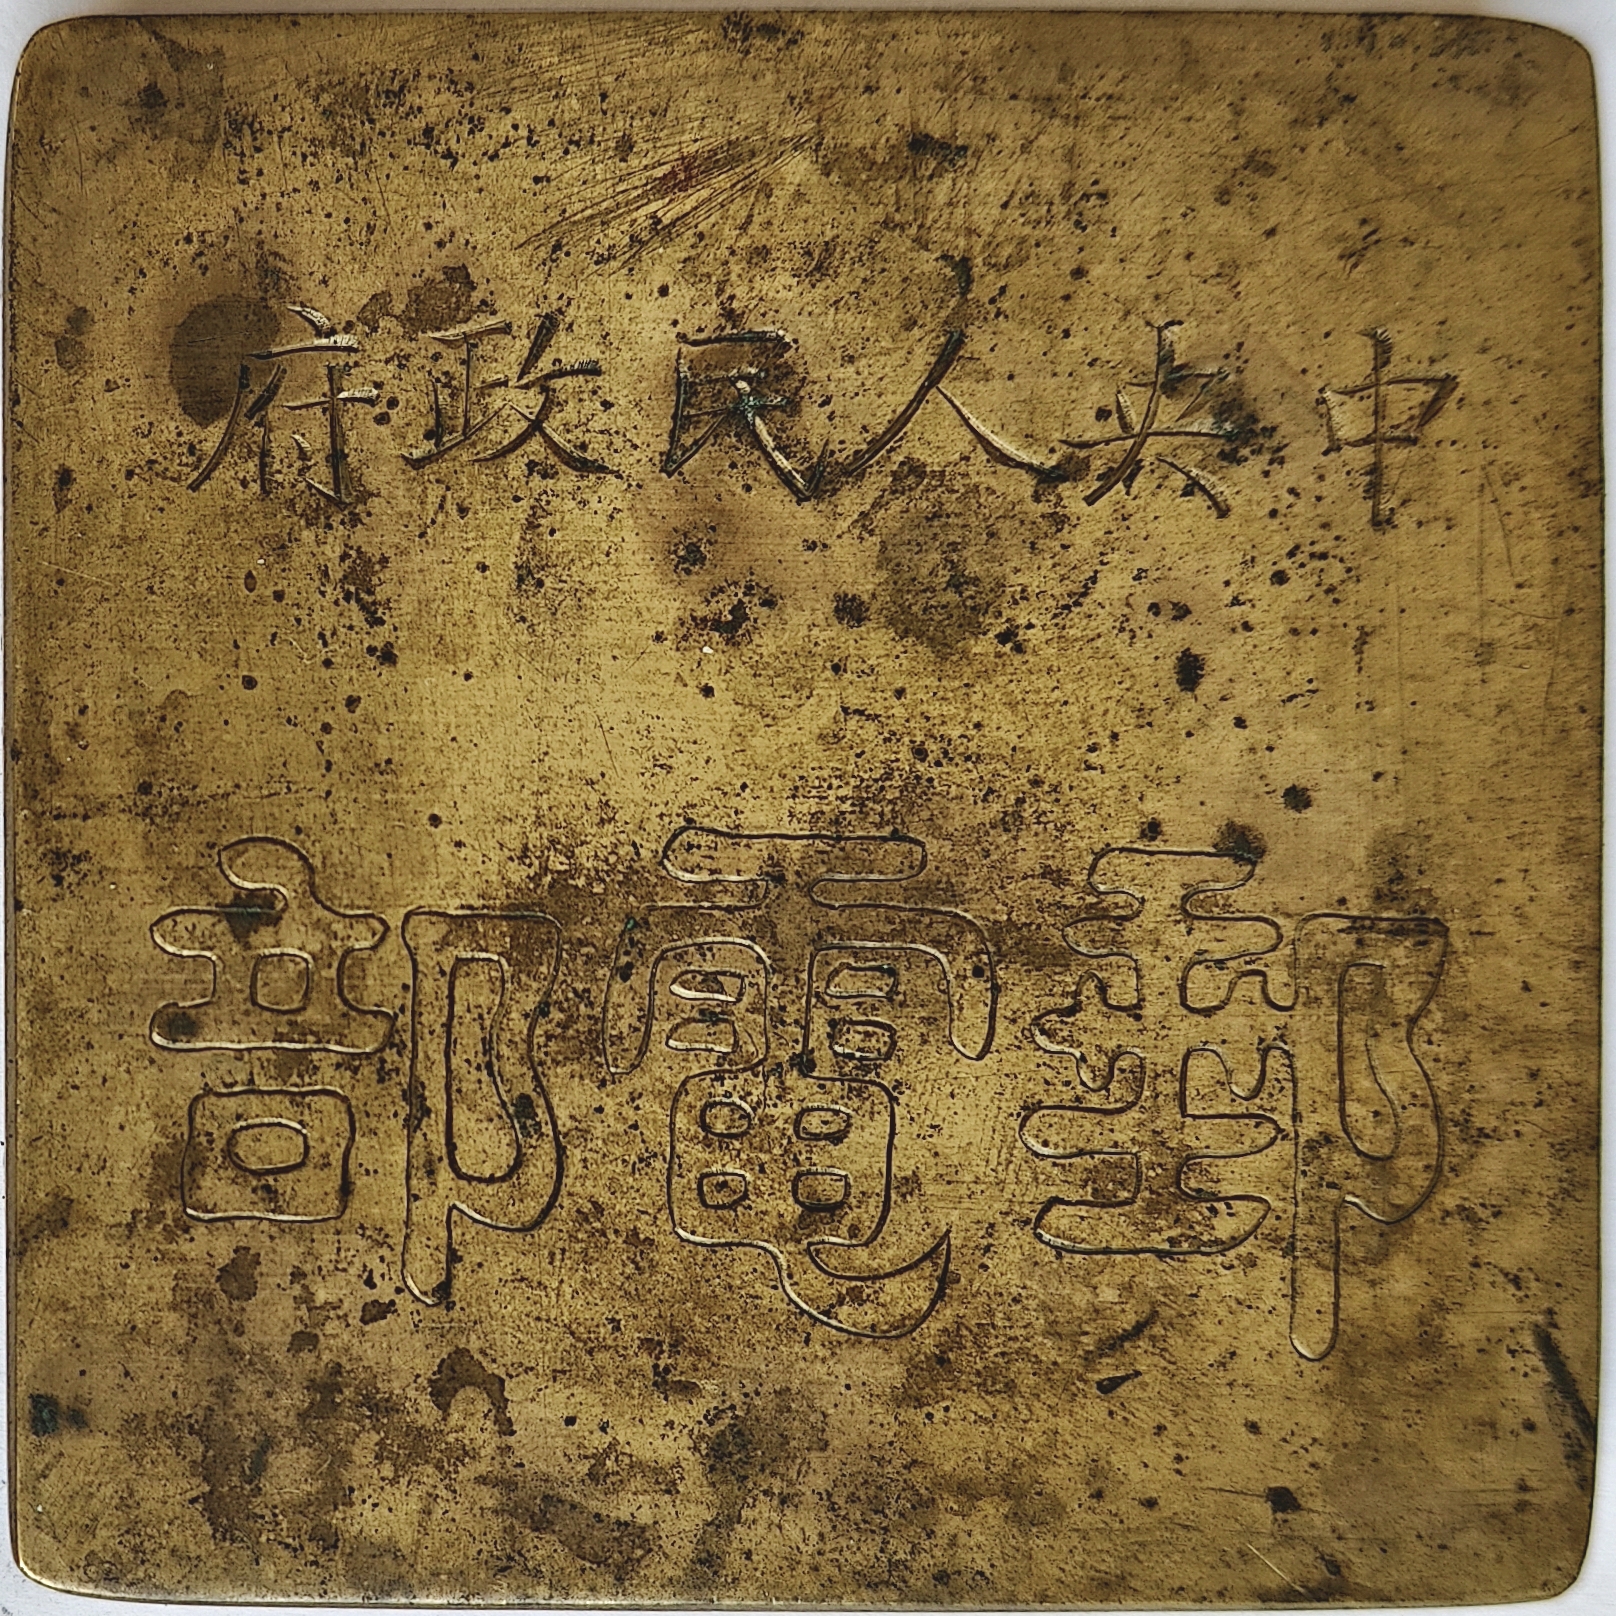 中央人民政府
郵電部